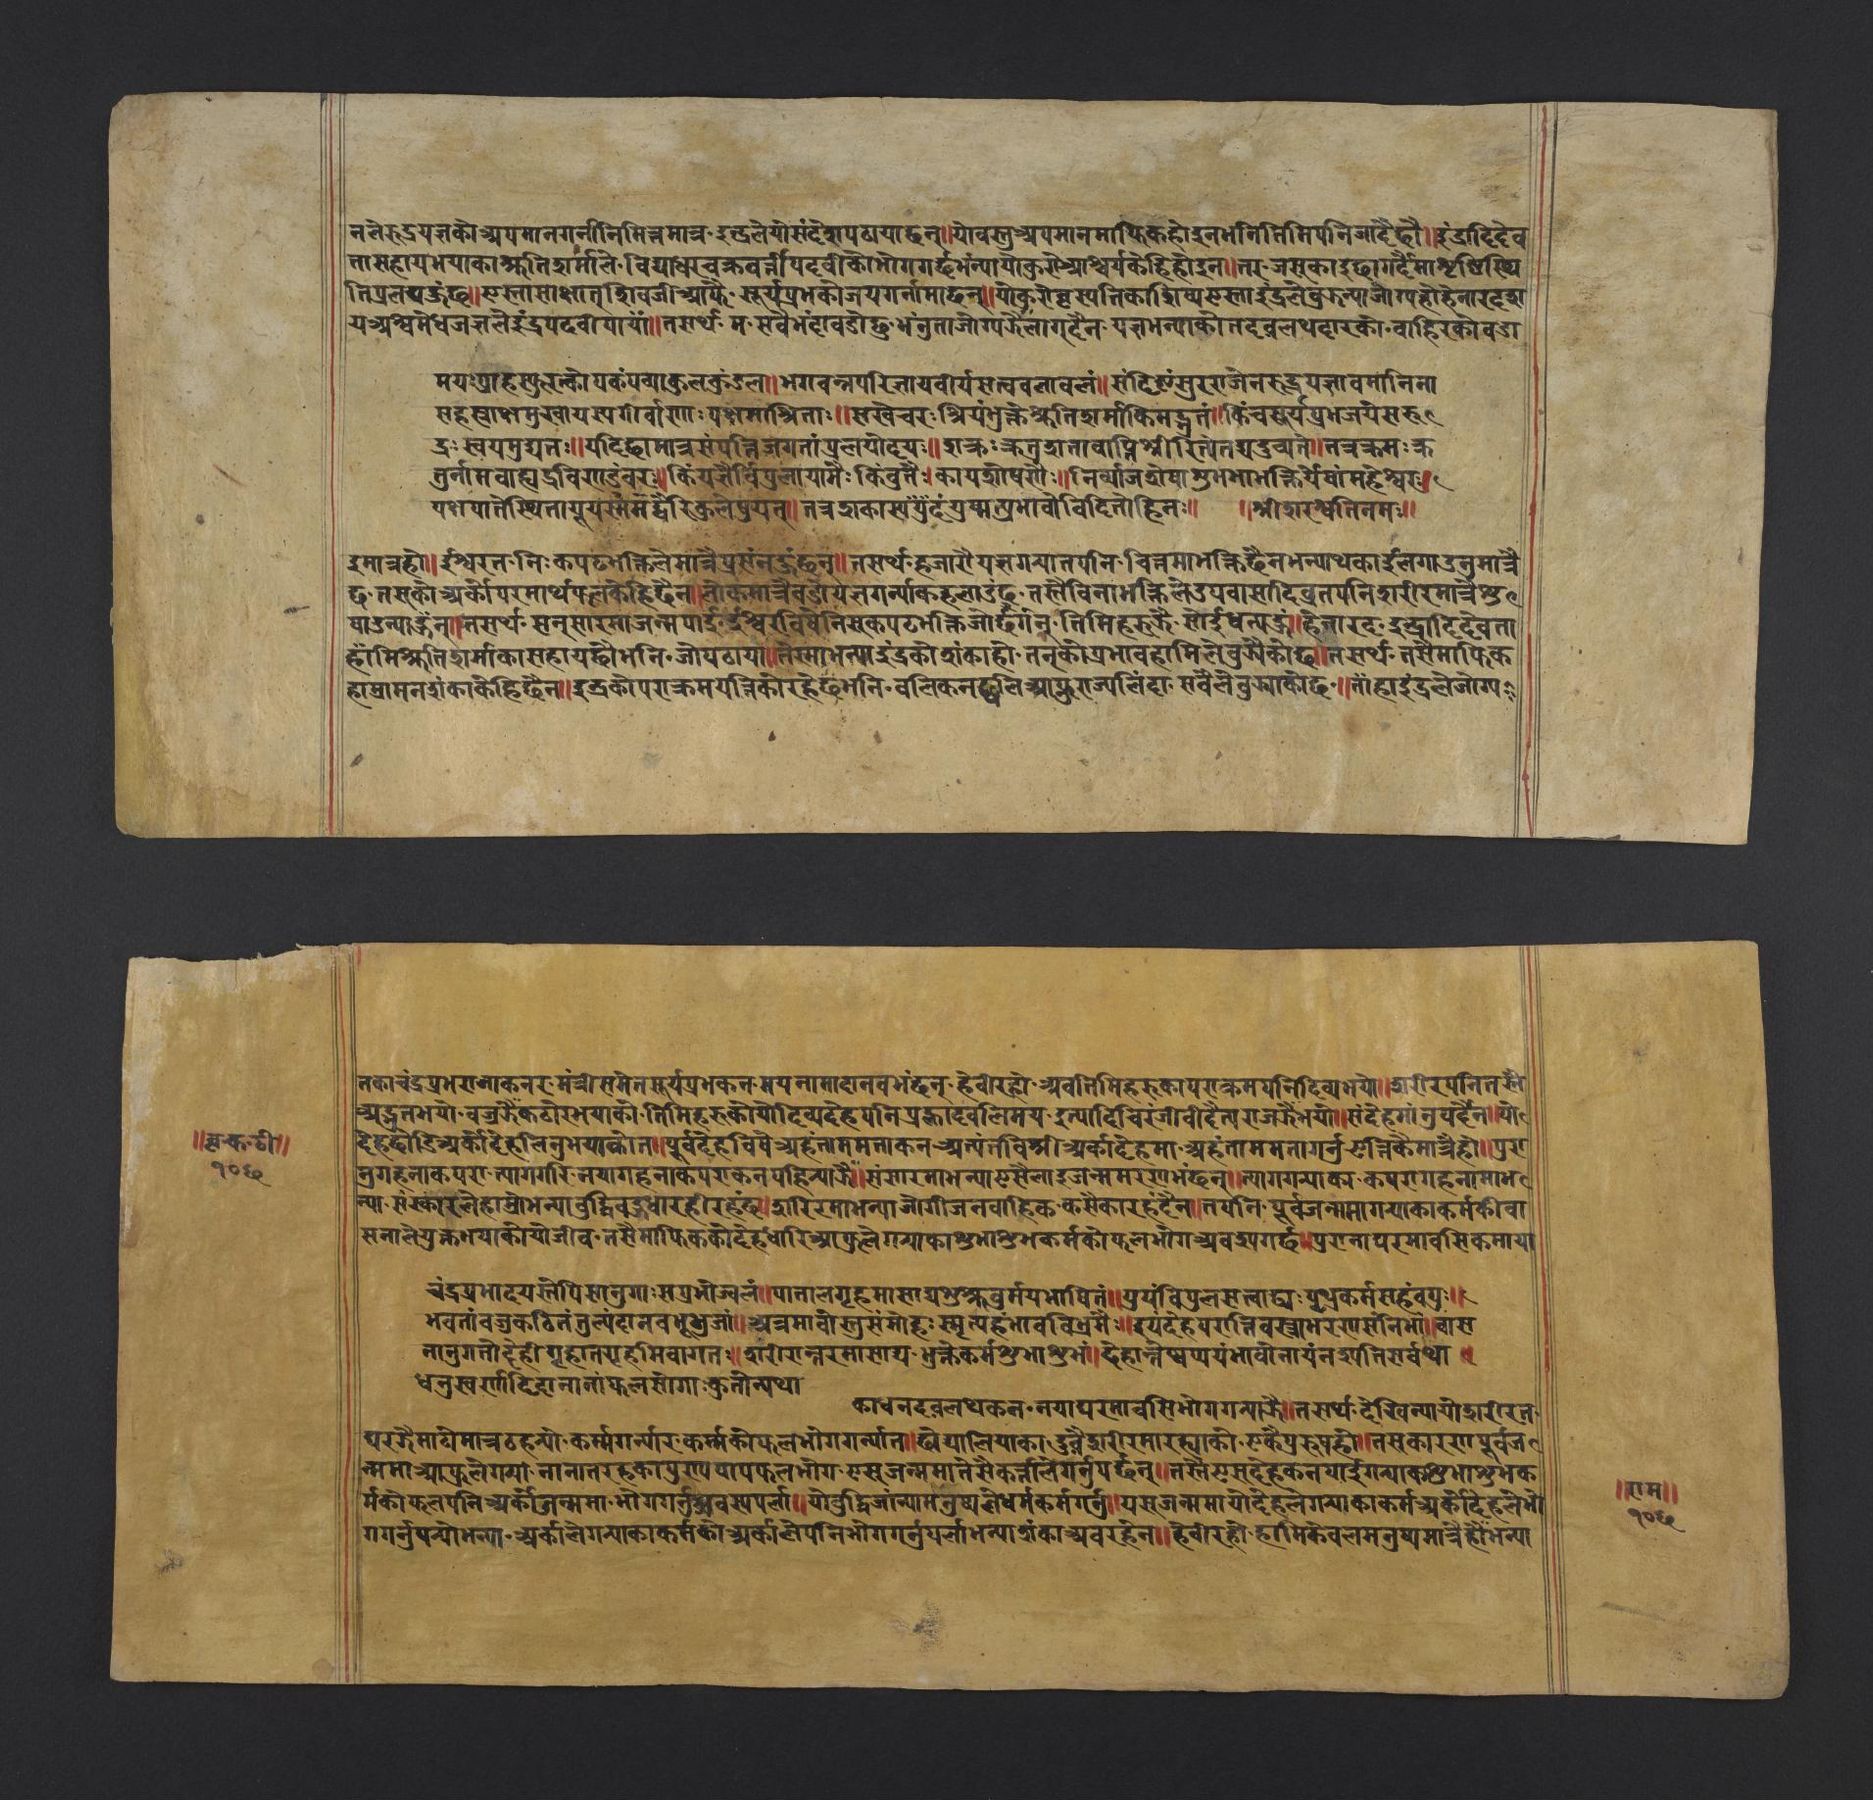 नले रुद्रयज्ञको अपमान गर्नानिमित्त मात्र इन्द्रले यो संदेश पठायाछन्॥ यो वस्तु अपमान माफिक होइन भनि तिमि पनि जांदैछौ॥ इंद्रादि देव
ता सहाय भयाका श्रुतिशर्माले विद्याधर चक्रवर्त्ती पदवीको भोग गर्छ भंन्या यो कुरो आश्चर्य केहि होइन॥ तर जसका इछा गर्दैमा सृष्टि स्थि
ति प्रलय हुंछ॥ एस्ता साक्षात् शिवजी आफै सूर्यप्रभको जय गर्नामा छन्॥ यो कुरो बृहस्पतिका शिष्य एस्ता इंद्रले बुझन्या जोग्य हो हे नारद श
य अश्वमेध जज्ञले इंद्र पदवी पायो॥ तसर्थ म सबैभंदा बडो छु भंनुता जोग्य झै लाग्दैन यज्ञ भन्याको त द्रव्यले थदारको बाहिरको बडा
मयः प्राह स्फुरत्कोपकंपव्याकुलकुंडलः॥ भगवन्नपरिज्ञाय वीर्यसत्वबलाबलं॥ संदिष्टं सुरराजेन रुद्रयज्ञावमानिना
सहस्राक्षमुखा यस्य गीर्वाणाः पक्षमाश्रिताः॥ सखेचरः श्रियं भुंक्ते श्रुतिशर्मा किमद्भुतं॥ किं च सूर्यप्रभजये स रु
द्रः स्वयमुद्यतः॥ यदिछामात्रसंपत्तिर्जगतां प्रलयोदयः॥ शक्रः क्रतुशतावाप्तिश्रीरित्येतद्यदुच्यते॥ तत्र क्रमः क्र
तुर्नाम बाह्यद्रविणाडंबरः॥ किं यज्ञैर्विपुलायामैः किं व्रतैः कायशोषणैः॥ निर्व्याजशेषा शुभभा भक्तिर्येषां महेश्वरः॥
पक्षपाते स्थिता यूयमस्मद्वैरिकुलेषु यत्॥ तत्र शक्रस्य युद्धं युष्मत्प्रभावो विदितो हि नः॥ ॥श्रीसरस्वति नमः॥
इमात्र हो॥ ईश्वर त निःकपट भक्तिले मात्रै प्रसंन हुंछन्॥ तसर्थ हजारौ यज्ञ गन्या त पनि चित्तमा भक्ति छैन भन्या थकाई लगाउनु मात्रै
छ तसको अर्को परमार्थ फल केहि छैन॥ लोकमात्रै बडो यज्ञ गर्न्या कहलाउंछ तस्तै विना भक्तिले उपवास आदि व्रत पनि शरीर मात्रै शु
षाउन्या हुन्॥ तसर्थ सनुसारमा जन्म पाई ईश्वर विषे निसकपट भक्ति जो गर्छन् तिमिहरु झै सोई धन्य हुं॥ हे नारद इन्द्रादि देवता
हामि श्रुतिशर्माका सहाय छौ भनि जो पठायो॥ तेस्मा भन्या इंद्रको शंका हो तनको प्रभाव हामिले बुझेको छ॥ तसर्थ तसै माफिक
हाम्रा मन शंका केहि छैन॥ इन्द्रको पराक्रम यत्तिको रहेछ भनि बलिकन छलि आफु राज्य लिंदा सबैले बुझ्याको छ॥ ताहा इंद्रले जोग्य
तका चंद्रप्रभ राजाकन र मंत्री समेत सूर्यप्रभकन मय नामा दानव भंछन् हे वीर हो अब तिमिहरुका पराक्रम पनि दिव्य भयो॥ शरीर पनि त झै
अद्भुत भयो वज्र झै कठोर भयाको तिमिहरुको यो दिव्य देह पनि प्रह्लाद बलि मय इत्यादि चिरंजीवी दैत्यराज झै भयो॥ संदेह गर्नु पर्दैन॥ यो
देह छोडि अर्का देह लिनु भयाको त॥ पूर्वदेह विषे अहंता ममता कन अत्यंत बिर्सी अर्का देहमा अहंता ममता गर्नु एत्तिकै मात्रै हो॥ पुरा
नु गहना कपरा त्याग गरि नया गहना कपराकन पहिन्या झै॥ संसारमा भन्या एसैलाइ जन्म मरण भंछन्॥ त्याग गन्याका कपरा गहनामा भ
न्या संस्कारले हाम्रो भन्या बुद्धि बहुधा रही रहंछ॥ शरिरमा भन्या जोगीजन बाहिक कसैका रहंदैन॥ तपनि पूर्वजन्ममा गयाका कर्मकी वा
सनाले युक्त भयाको यो जीव तसै माफिकको देह धारि आफुले गन्याका शुभाशुभ कर्मको फल भोग अवश्य गर्छ॥ पुराना घरमा बसि कमाया
चंद्रप्रभादयस्तेपि सानुगाः सप्रभोज्वलं॥ पातालगृहमासाद्य शुक्लवुर्मयभाषितं॥ युयं विपुलसत्वाढ्याः पृथुकर्मसहं वपुः॥
भवतां वज्रकठिनं तुल्यं दानवभूभुजां॥ अत्र मा वोस्तु संमोहः स्मृत्यहंभावविभ्रमैः॥ इयं देहपरावृत्तिर्वस्त्राभरणसंनिभा॥ वास
नानुगतो देही गृहाद्गृहमिवागतः॥ शरीरान्तरमासाद्य भुंक्ते कर्म शुभाशुभं॥ देहान्तेष्वप्ययंभावी नायं नश्यति सर्वथा॥
धनुस्वर्णादिदानानां फलभोगाः कुतोन्यथा
का धन द्रव्यले थेकन नया घरमा बसि भोग गन्या झै॥ तसर्थ देखिन्या यो शरीर त
घर झै माटो मात्र ठहर्‍यो कर्म्म गर्न्या र कर्म्मको फल भोग गर्न्या त॥ छोड्या लियाका दुवै शरीरमा रह्याको एकै पुरुष हो॥ तस कारण पूर्वज
न्ममा आफुले गर्‍यो नाना तरहका पुण्य पापफल भोग एस जन्ममा तेसै कर्त्ताले गर्नुपर्छन्॥ तस्तै एस देहकन पाई गन्याका शुभाशुभ क
र्मको फल पनि अर्का जन्ममा भोग गर्नु अवश्य पर्ला॥ यो बुद्धि जांन्या मनुष्यले धर्म कर्म गर्नु॥ यस जन्ममा यो देहले गन्याका कर्म अर्का देहले भो
ग गर्नु पन्यो भन्या अर्काले गन्याका कर्मको अर्काले पनि भोग गर्नु पर्ला भन्या शंका अब रहेन॥ हे वीर हो हामि केवल मनुष्य मात्रै हौं भन्या
॥बृ·क·टी॥
१०६
॥राम॥
१०६